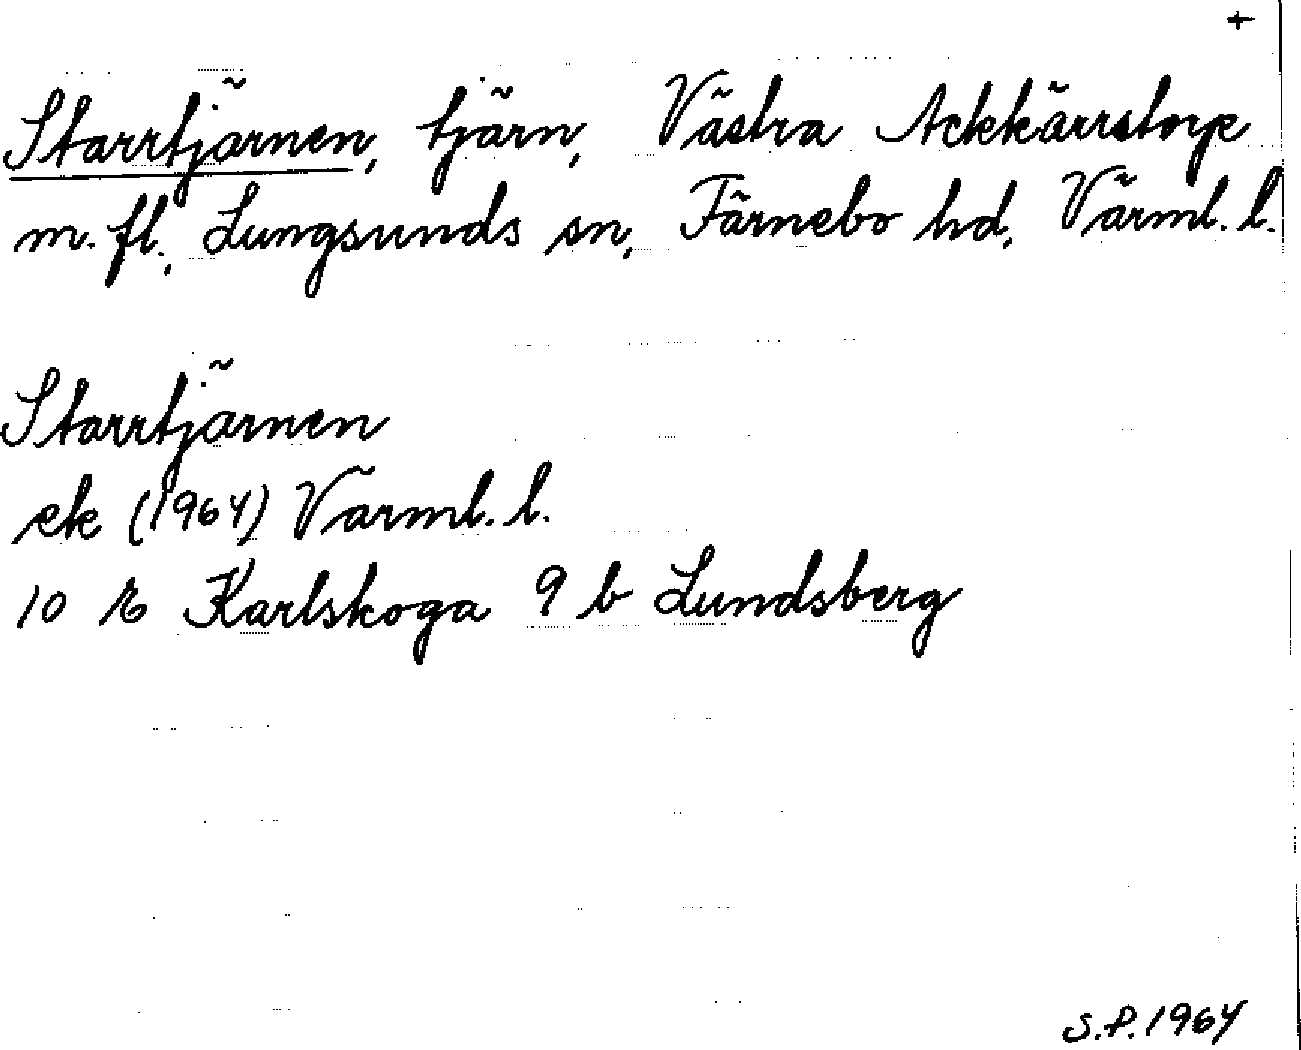 +
Starrtjärnen, tjärn, Västra Ackkärrstorp
m. fl., Lungsunds sn, Färnebo hd, Värml. l.
Starrtjärnen
ek (1964) Värml. l.
10 E Karlskoga 9 b Lundsberg
S.P. 1964